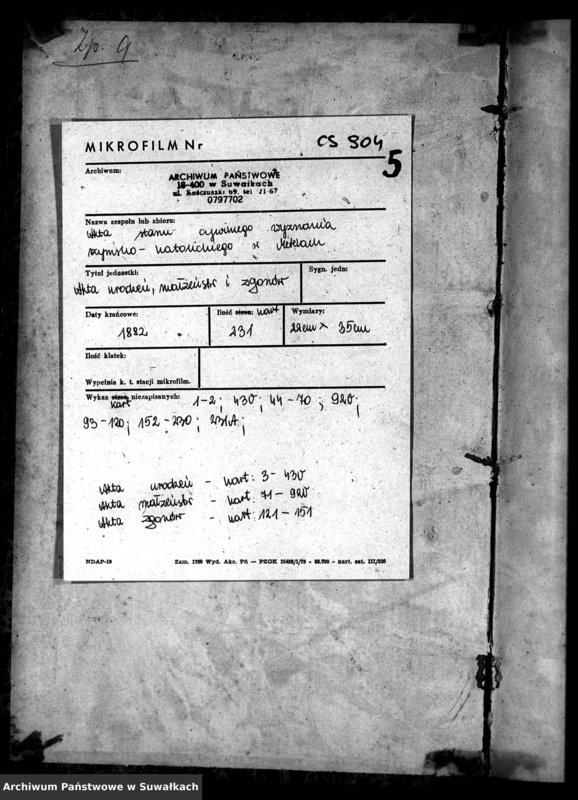 Zp. 9
MIKROFILM Nr CS 304
5
Archiwum:
ARCHIWUM PAŃSTWOWE
16-400 w Suwałkach
ul. Kościuszki 69, tel 21-67
0797702
Nazwa zespołu lub zbioru:
Akta stanu cywilnego wyznania
rzymsko-katolickiego w
Tytuł jednostki: Sygn. jedn:
Akta urodzeń, małżeństw i zgonów
Daty krańcowe: Ilość stron: kart Wymiary:
1882 231 22cm x 35cm
Ilość klatek:
Wypełnia k. t. stacji mikrofilm.
Wykaz stron niezapisanych: 1-2; 43v; 44-70; 92v;
kart
93-120; 152-230; 231A;
Akta urodzeń - kart: 3-43v
Akta małżeństw - kart: 71-92v
Akta zgonów - kart: 121-151
NDAP-10 Zam. 1798 Wyd. Akc. Pń — PZGK
Archiwum Państwowe w Suwałkach